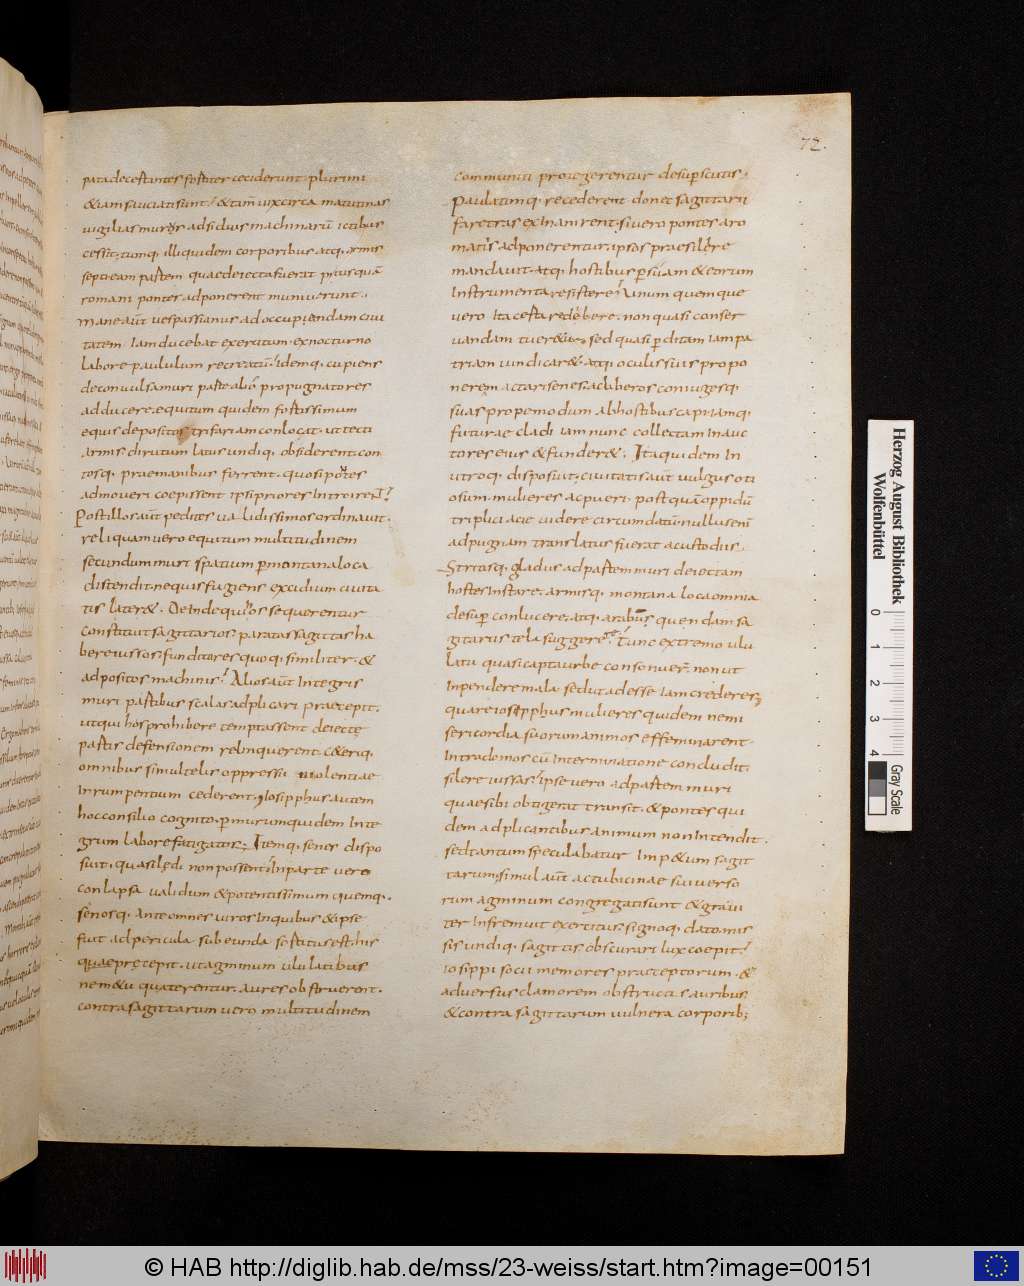 72.
pata decertantes fortiter ceciderunt. plurimi
&iam sauciati sunt; &tam̄ vix circa matutinas
vigilias murus adsiduis machinarū ictibus
cessit; tumq. illi quidem corporibus atq. armis
septi eam partem quae deiecta fuerat priusquā
romani pontes adponerent munierunt.
mane aūt vespasianus ad occupiendam civi
tatem. iam ducebat exercitum. ex nocturno
labore paululum recreatū; idemq. cupiens
de convulsa muri parte alio propugnatores
adducere. equitum quidem fortissimum
equis depositos trifariam conlocat. ut tecti
armis dirutum latus undiq. obsiderent. con
tosq. prae manibus ferrent. quo si pontes
admoveri coepissent ipsi priores introirent;
Post illos aūt pedites validissimos ordinavit.
reliquam vero equitum multitudinem
secundum muri spatium per montana loca
distendit. nequis fugiens excidium civita
tis later&. Deinde qui hos sequerentur
constituit sagittarios. paratas sagittas ha
bere iussos. funditores quoq. similiter. &
adpositos machinis; Alios aūt integris
muri partibus scalas adplicari praecepit.
ut qui hos prohibere temptassent deiectę
partis defensionem relinquerent. c&eriq.
omnibus simul telis oppressi violentiae
inrumpentium cederent. iosipphus autem
hoc consilio cognito. p murum quidem inte
grum labore fatigatos; Itemq. senes dispo
suit. quasi lędi non possent; in parte vero
conlapsa validum &potentissimum quemq..
senosq. ante omnes viros in quibus &ipse
fuit ad pericula subeunda sortitus est. his
quae pręcepit. ut agminum ululatibus
ne m&u quaterentur. aures obstruerent.
contra sagittarum vero multitudinem
communiti protegerentur desuper scutis.
Paulatimq. recederent donec sagittarii
faretras exinanirent. si vero pontes aro
matis adponerentur. ipsos praesilere
mandavit. atq. hostibus p suam &eorum
instrumenta resistere; Unum quemque
vero ita certare debere. non quasi conser
vandam tuer&ur. sed quasi p ditam iam pa
triam vindicar&. atq. oculis suis propo
nerem actari senes. ac liberos coniugesq.
suas propemodum ab hostibus capi. iamq.
futurae cladi iam nunc collectam in auc
tores eius &funder&. Ita quidem in
utroq. disposuit. civitatis aūt vulgus oti
osum. mulieres ac pueri. postquā oppidū
triplici acie videre circumdatū nullus enī
ad pugnam translatus fuerat a custodiis.
Strictosq. gladios ad partem muri deiectam
hostes instare. armisq. montana loca omnia
desup conlucere. atq. arabus quendam sa
gitariis tela suggere; Tunc extremo ulu
latu quasi capta urbe consonuer. non ut
inpendere mala. sed ut adesse iam crederes
quare iosipphus mulieres quidem ne mi
sericordia suorum animos effeminarent.
intra domos cū interminatione conclu dit.
silere iussas; ipse vero ad partem muri
quae sibi obtigerat transit. &pontes qui
dem adplicantibus animum non intendit.
sed tantum speculabatur imp&um sagit
tarum. simul aūt ac tubicinae suiverso
rum agminum congregati sunt &gravi
ter infremuit exercitus. signoq. dato mis
sis undiq. sagittis obscurari lux coepit;
iosippi socii memores praeceptorum. &
adversus clamorem obstructis auribus
&contra sagittarum vulnera corporib;
Herzog August Bibliothek
Wolfenbüttel
0 1 2 3 4
Gray Scale
© HAB http://diglib.hab.de/mss/23-weiss/start.htm?image=00151